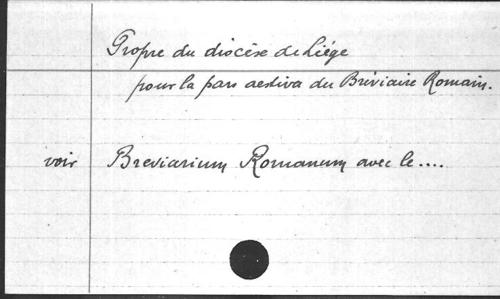 Propre du diocèse de Liége
pour la pars aestiva du Bréviaire Romain.
voir Breviarium Romanum avec le....